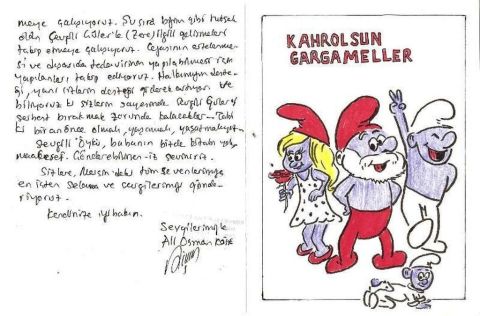 meye çalışıyoruz. Şu sıra bizim gibi tutsak
olan Sevgili Güler'le (Zere) ilgili gelişmeleri
takip etmeye çalışıyoruz. Cezasının ertelenme-
si ve dışarıda tedavisinin yapılabilmesi için
yapılanları takip ediyoruz. Halkımızın deste-
ği, yani sizlerin desteği giderek artıyor. Ve
biliyoruz ki sizlerin sayesinde Sevgili Güler'i
serbest bırakmak zorunda kalacaklar. Tabi
ki bir an önce olmalı, yaşamalı, yaşatmalıyız.
Sevgili Öykü, babanın bizde kitabı yok
maalesef. Gönderebilirsen-iz seviniriz.
Sizlere, Mersin'deki tüm sevenlerimize
en içten selam ve sevgilerimizi gönde-
riyoruz.
Kendinize iyi bakın.
Sevgilerimizle
Ali Osman
KAHROLSUN
GARGAMELLER